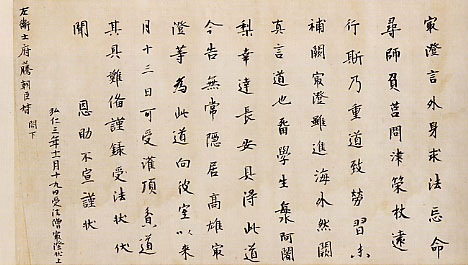 㝡澄言外身求法忘命
尋師負笈問津策杖遠
行斯乃重道致勞習未
補闕㝡澄雖進海外然闕
真言道也留學生海阿闍
梨幸達長安具得此道
今告無常隠居高雄㝡
澄等為此道向彼室以来
月十三日可受灌頂貧道
其具難備謹録受法状伏
聞 恩助不宣謹状
弘仁三年十一月十九日受法僧㝡澄状上
左衛士府藤朝臣督 閤下